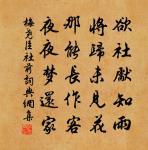 欲社獻知雨
將歸未見花
那能長作客
夜夜夢還家
梅堯臣社前詞典網集